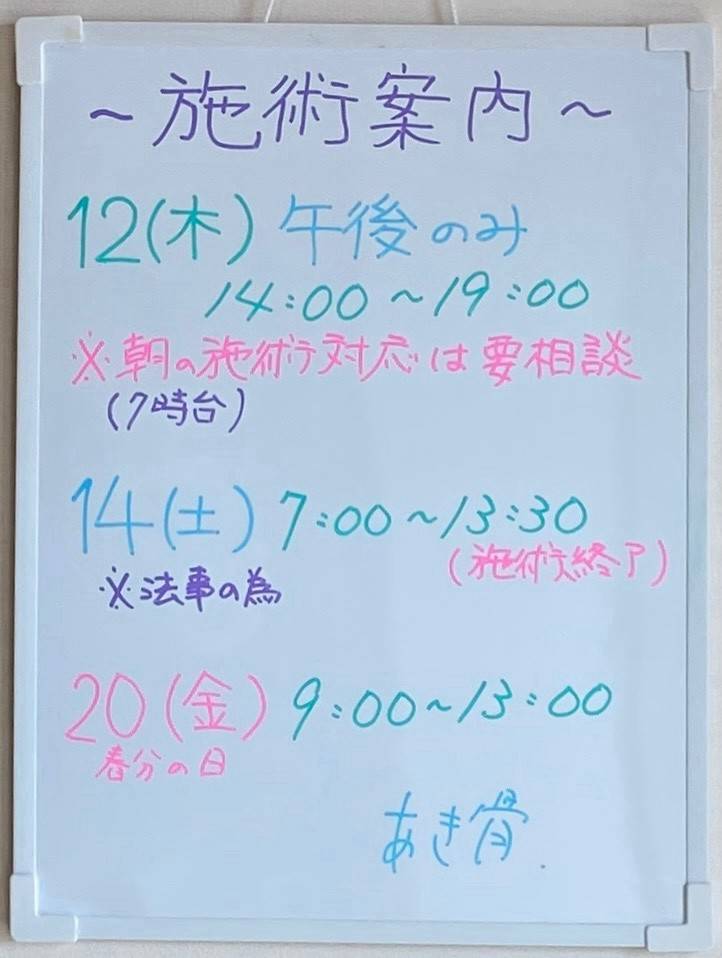 ~施術案内~
12(木) 午後のみ
14:00~19:00
※朝の施術対応は要相談
(7時台)
14(土) 7:00~13:30
(施術終了)
※法事の為
20(金) 9:00~13:00
春分の日
あき骨.